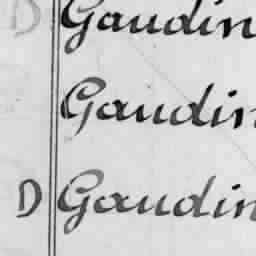 D Gaudin
Gaudin
D Gaudin